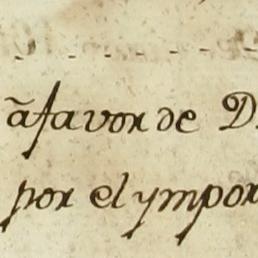 ã favor de D.
por el ympor